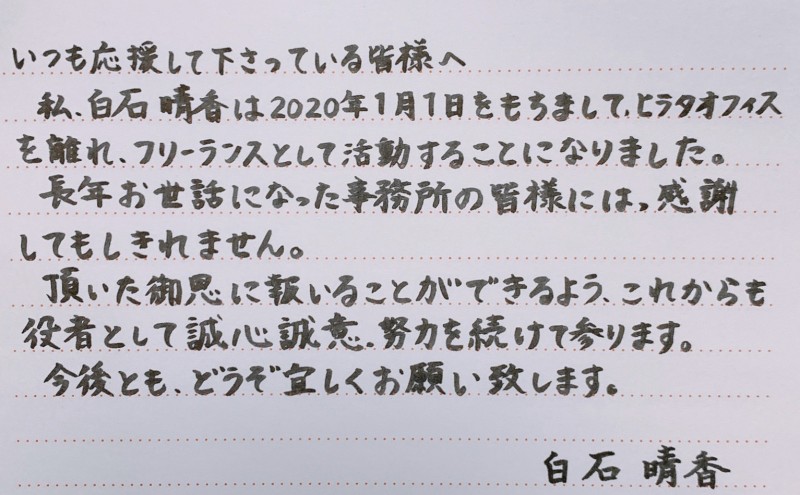 いつも応援して下さっている皆様へ
私、白石晴香は2020年1月1日をもちまして、ヒラタオフィス
を離れ、フリーランスとして活動することになりました。
長年お世話になった事務所の皆様には、感謝
してもしきれません。
頂いた御恩に報いることができるよう、これからも
役者として誠心誠意、努力を続けて参ります。
今後とも、どうぞ宜しくお願い致します。
白石 晴香